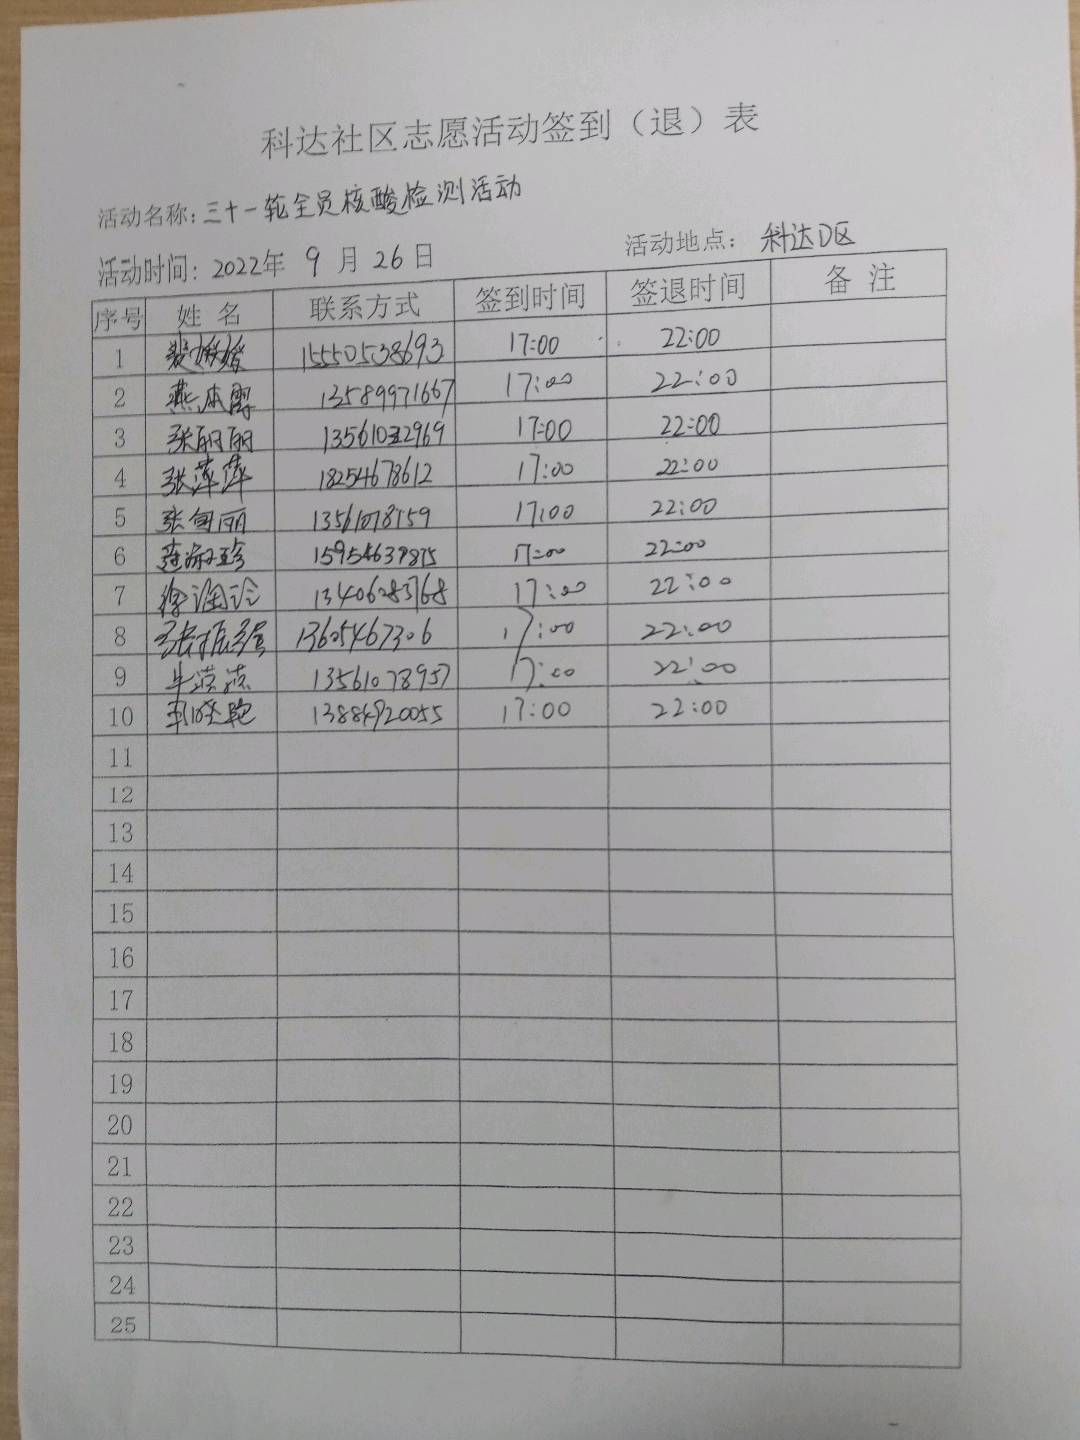 科达社区志愿活动签到（退）表
活动名称：三十一轮全员核酸检测活动
活动时间：2022年 9 月 26 日 活动地点：科达D区
序号 姓 名 联系方式 签到时间 签退时间 备 注
1 15550538693 17:00 22:00
2 燕本霞 13589971667 17:00 22:00
3 张丽丽 13561032969 17:00 22:00
4 张萍萍 18254678612 17:00 22:00
5 张自丽 13561078159 17:00 22:00
6 15954639875 17:00 22:00
7 13406283768 17:00 22:00
8 13605467306 17:00 22:00
9 13561078957 17:00 22:00
10 13884920055 17:00 22:00
11
12
13
14
15
16
17
18
19
20
21
22
23
24
25